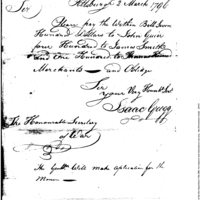 Pittsburgh 2 March 1796
Sir
Please pay the Within Bill Seven
Hundred Dollars to John Guier
four Hundred to James Smith
and One Hundred to
Merchants — and Oblige
Sir
your Very Humble Ser
Isaac Craig
The Honourable Secretary
of War
The Gentn. Will make application for the
Money